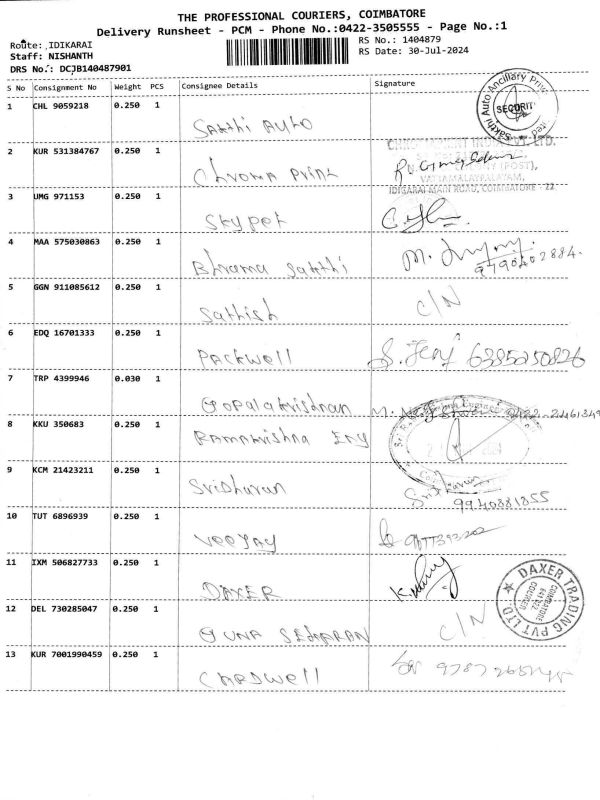 THE PROFESSIONAL COURIERS, COIMBATORE
Delivery Runsheet - PCM - Phone No.:0422-3505555 - Page No.:1
Route: IDIKARAI
RS No.: 1404879
Staff: NISHANTH
RS Date: 30-Jul-2024
DRS No.: DCJB140487901
S No Consignment No Weight PCS Consignee Details Signature
1 CHL 9059218 0.250 1
Sakthi Auto
Sakthi Auto Ancillary
SECURIT
2 KUR 531384767 0.250 1
Chroma Print
VATTAMALAYPALAYAM,
IDIGARAI MAIN ROAD, COIMBATORE - 22
3 UMG 971153 0.250 1
Skypet
4 MAA 575030863 0.250 1
Bhrama Sakthi
5 GGN 911085612 0.250 1
Sathish C/N
6 EDQ 16701333 0.250 1
Packwell S. Jeny 6385250826
7 TRP 4399946 0.030 1
Gopalakrishnan 0422-2461349
8 KKU 350683 0.250 1
Ramakrishna Eng
9 KCM 21423211 0.250 1
Sridharan
9940881855
10 TUT 6896939 0.250 1
VEEJAY
11 IXM 506827733 0.250 1
DAXER
DAXER TRADING PVT LTD
COIMBATORE
641 022
12 DEL 730285047 0.250 1
GUNA SEKARAN C/N
13 KUR 7001990459 0.250 1
Cardwell